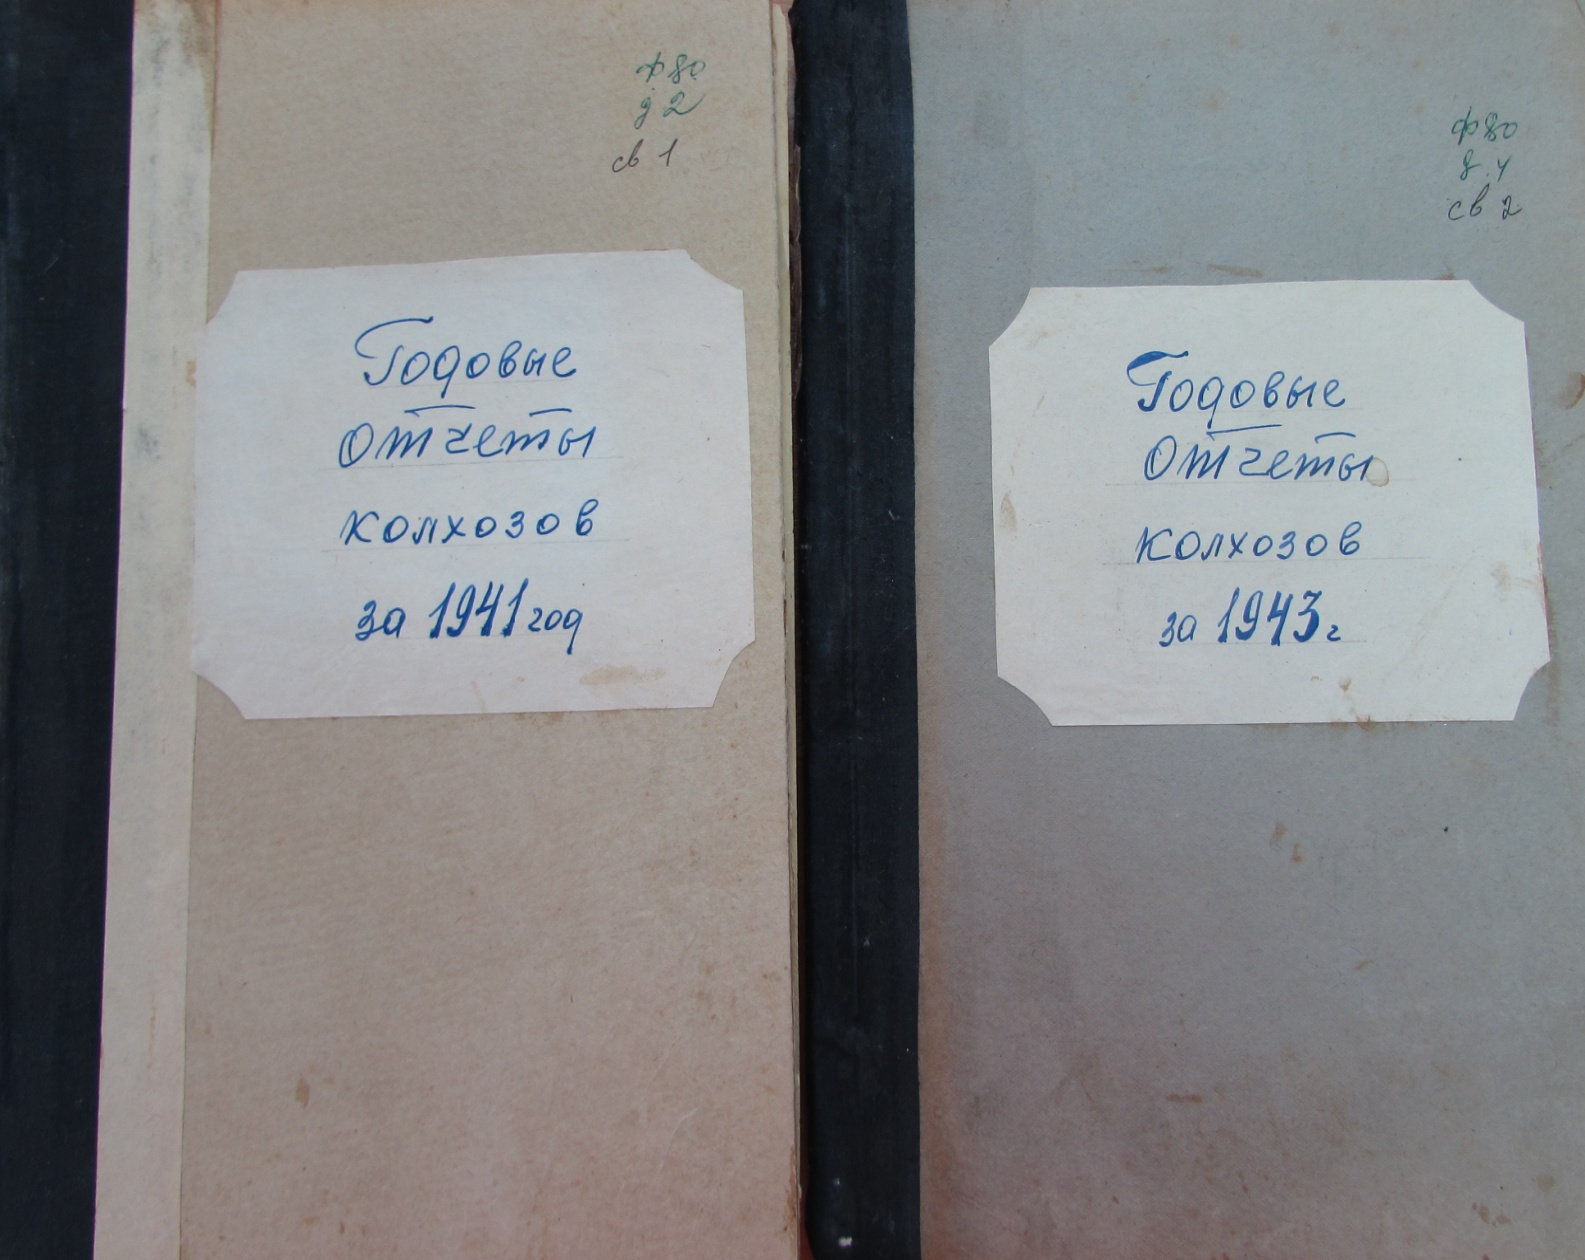 ф 80
д 2
св 1
Годовые
отчеты
колхозов
за 1941 год
ф 80
д. 4
св 2
Годовые
отчеты
колхозов
за 1943 г